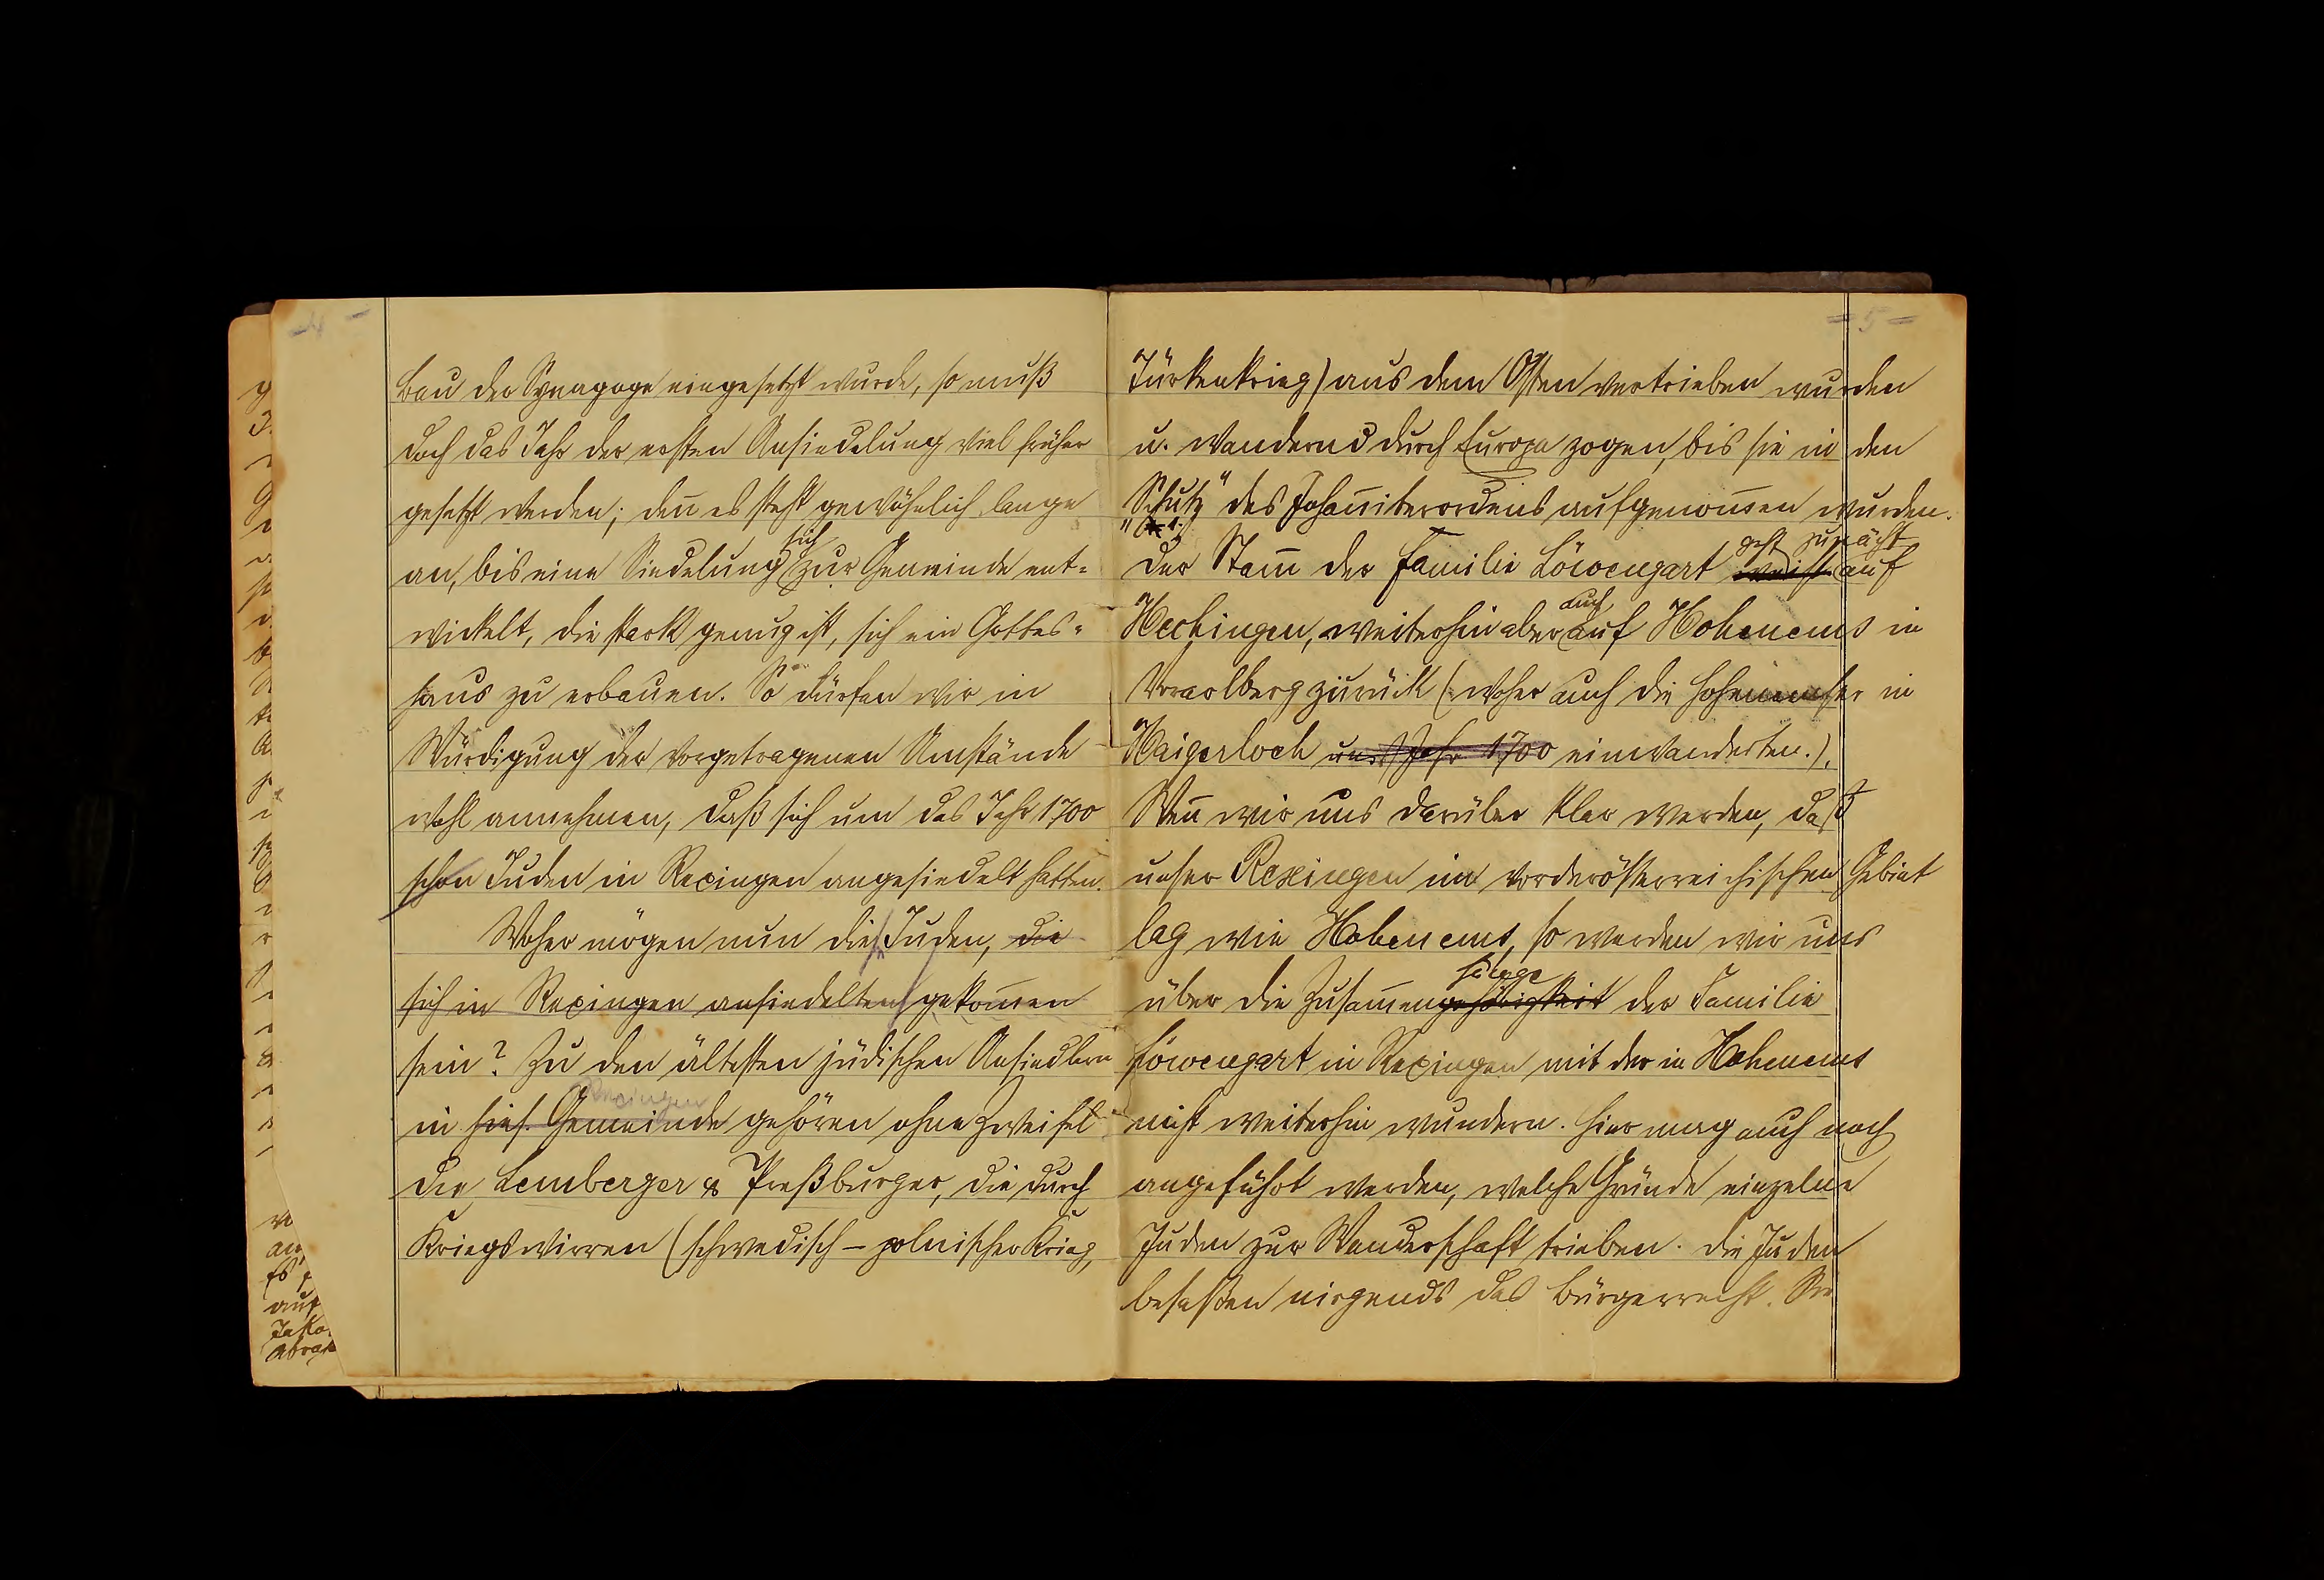 - 4 -
bau der Synagoge eingesetzt wurde, so muß
doch das Jahr der ersten Ansiedelung viel früher
gesetzt werden; den̄ es steht gewöhnlich lange
an, bis eine Siedelung sich zur Gemeinde ent-
wickelt, die stark genug ist, sich ein Gottes-
haus zu erbauen. So dürfen wir in
Würdigung der vorgetragenen Umstände
wohl annehmen, daß sich um das Jahr 1700
schon Juden in Rexingen angesiedelt hatten.
Woher mögen nun diese Juden, die
sich in Rexingen ansiedelten gekom̄en
sein? Zu den ältesten jüdischen Ansiedlern
Rexingen
in hies. Gemeinde gehören ohne Zweifel
die Lemberger & Preßburger, die durch
Kriegswirren (schwedisch - polnischer Krieg,
- 5 -
Türkenkrieg) aus dem Osten vertrieben wurden
u. wandernd durch Europa zogen, bis sie in den
„Schutz" des Johan̄iterordens aufgenom̄en wurden.
geht zunächst
Der Stam̄ der Familie Löwengart weist auf
Hechingen, weiterhin aber auch auf Hohenems in
Vorarlberg zurück (woher auch die Hohenemser in
Haigerloch ums Jahr 1700 einwanderten.).
Wen̄ wir uns darüber klar werden, daß
unser Rexingen im vorderösterreichischen Gebiet
lag wie Hohenems, so werden wir uns
hänge
über die Zusam̄engehörigkeit der Familie
Löwengart in Rexingen mit der in Hohenems
nicht weiterhin wundern. Hier mag auch noch
angeführt werden, welche Gründe einzelne
Juden zur Wanderschaft trieben. Die Juden
besaßen nirgends das Bürgerrecht. Sie